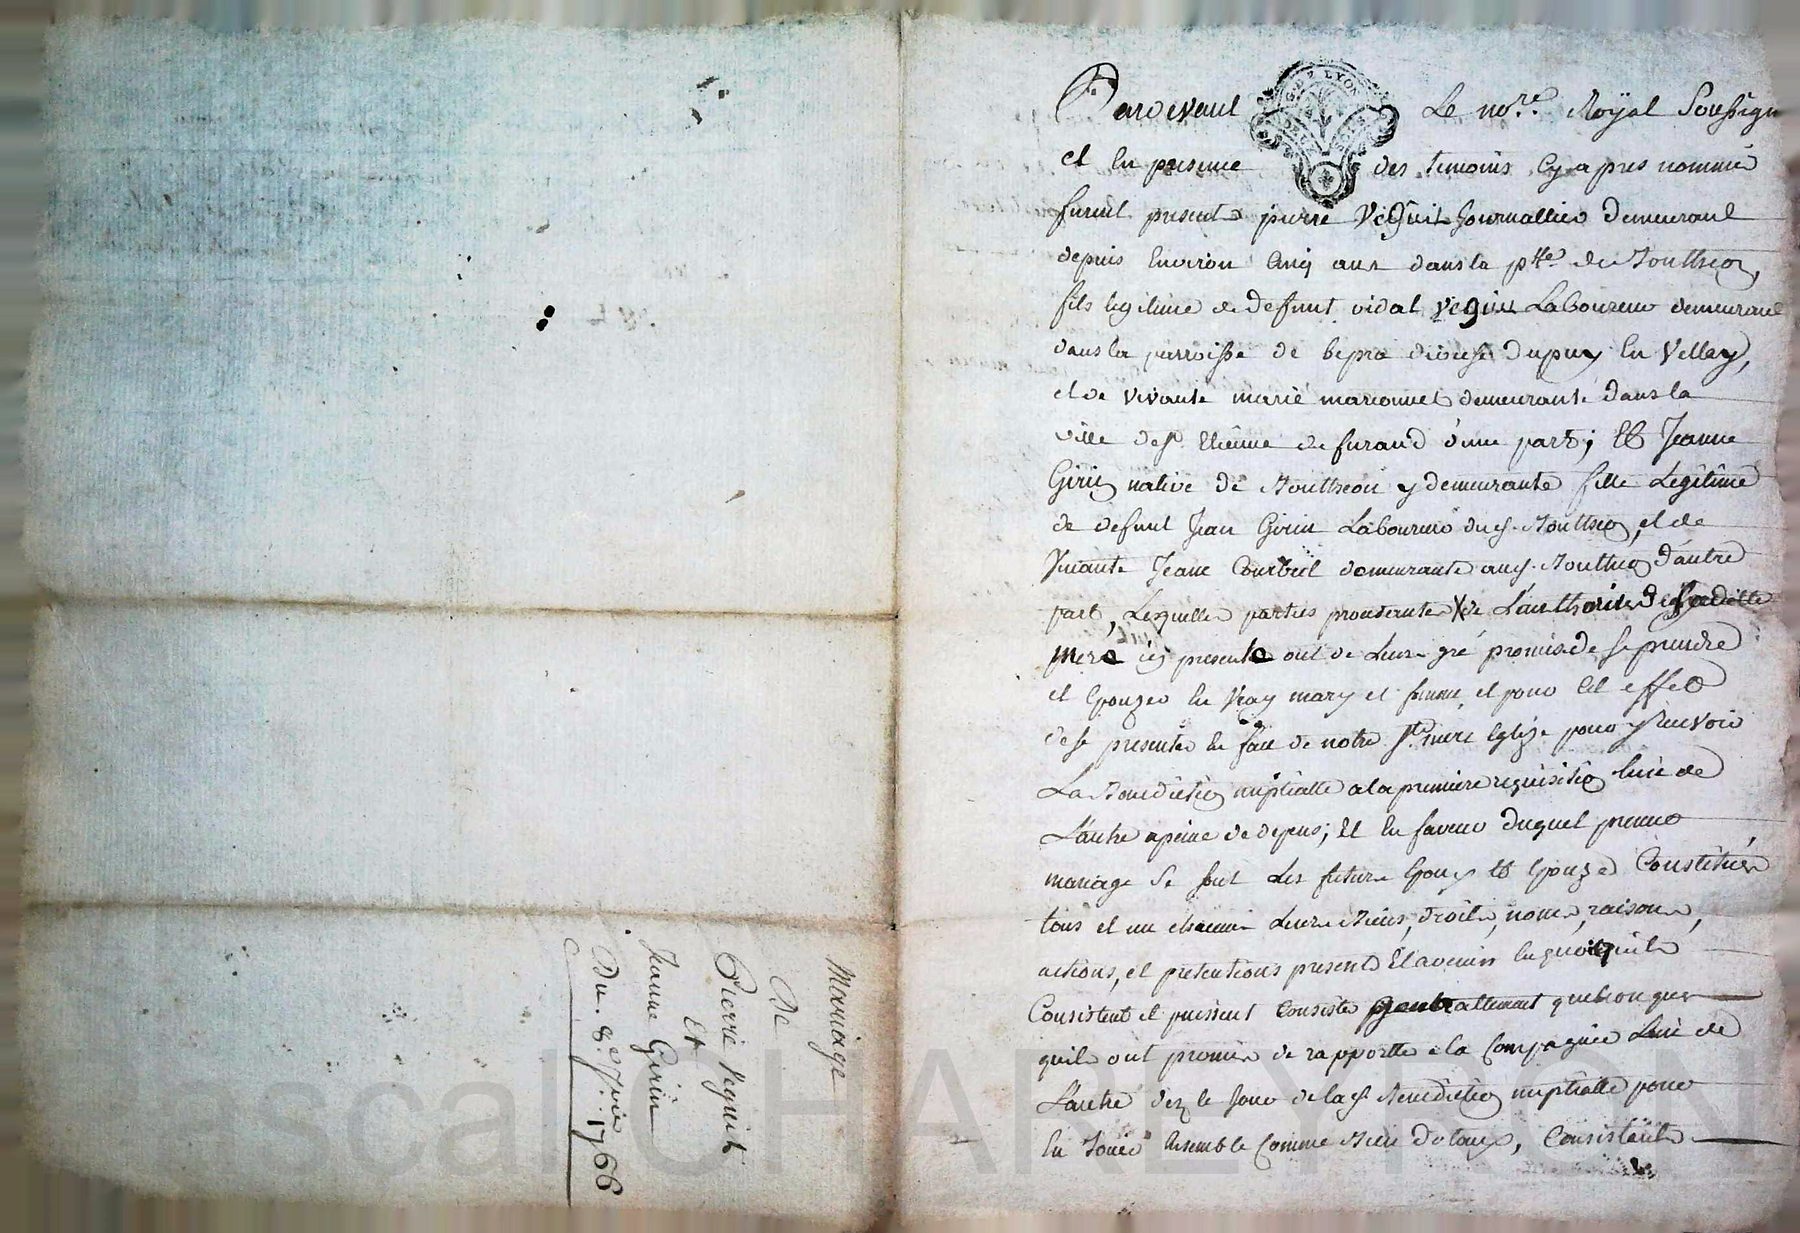 Mariage
De
Pierre Veguit
Et
Jeanne Girin
Du 8e. 1766
GEN. LYON
Pardevant Le nore. Royal Soussign
et En presence des temoins Cy apres nommé
furent presents pierre Veguit Journallier demeurant
depuis Environ Cinq ans dans la ptte. de
fils legitime de deffunt vidal veguit Laboureur demeurant
dans la parroisse de diocese dupuy En Vellay,
et de vivante marie marconnet demeurante dans la
ville de st. Etienne de furand d'une part; Et Jeanne
Girin native de y demeurante fille Legitime
de defunt Jean Girin Laboureur dud. et de
vivante Jeanne demeurante aud. d'autre
part, Lesquelles parties procedantes X de L'authorité de saditte
mere icy presente ont de Leur gré promis de se prendre
et Epouzer En vray mary et femme, et pour Cet effet
de se presenter En face de notre ste. mere Eglize pour y recevoir
La Benediction nuptialle a la premiere requisition Lune de
L'autre a peine de depens; Et En faveur duquel present
mariage Se sont Les futurs Epoux Et Epouze Constitués
tous et un chacuns Leurs Biens, droits, noms, raisons,
actions, et pretentions presents Et avenirs En quoi quils
Consistent et puissent Consister generallement quelconques
quils ont promis de rapporter a la Compagnie Lune de
L'autre dez le Jour de lad. Benediction nuptialle pour
En Jouir Ensemble Comme Bien dotaux, Consistants
scal CHARLYRON